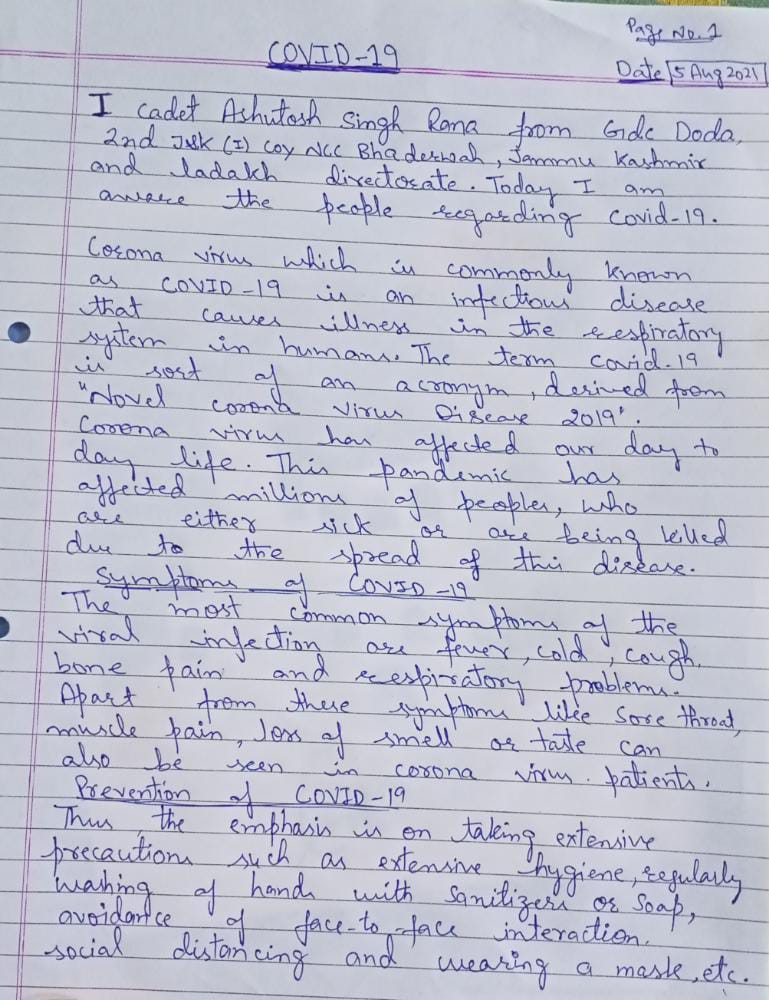 Page No. 1
COVID-19
Date 5 Aug 2021
I cadet Ashutosh Singh Rana from Gdc Doda,
2nd J&K (I) Coy NCC Bhaderwah, Jammu Kashmir
and ladakh directorate. Today I am
aware the people regarding covid-19.
Corona virus which is commonly known
as COVID-19 is an infectious disease
that causes illness in the respiratory
system in humans. The term covid-19
is sort of an acronym, derived from
"Novel corona virus Disease 2019".
Corona virus has affected our day to
day life. This pandemic has
affected millions of peoples, who
are either sick or are being killed
due to the spread of this disease.
Symptoms of COVID-19
The most common symptoms of the
viral infection are fever, cold, cough,
bone pain and respiratory problems.
Apart from these symptoms like Sore throat,
muscle pain, loss of smell or taste can
also be seen in corona virus patients.
Prevention of COVID-19
Thus, the emphasis is on taking extensive
precautions such as extensive hygiene, regularly
washing of hands with Sanitizers or Soap,
avoidance of face-to-face interaction,
social distancing and wearing a mask, etc.